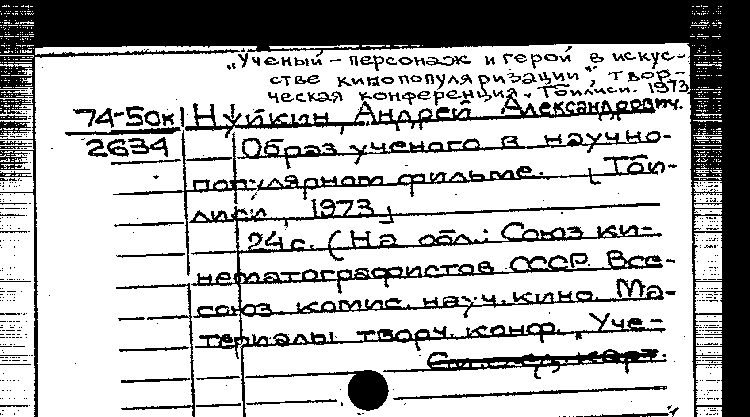 „Ученый – персонаж и герой в искус-
стве кинопопуляризации“, твор-
ческая конференция. Тбилиси. 1973
74-50к Нуйкин, Андрей Александрович.
2634 Образ ученого в научно-
популярном фильме. [Тби-
лиси, 1973]
24 с. (На обл.: Союз ки-
нематографистов СССР. Все-
союз. комис. науч. кино. Ма-
териалы творч. конф. „Уче-
См. след. карт.